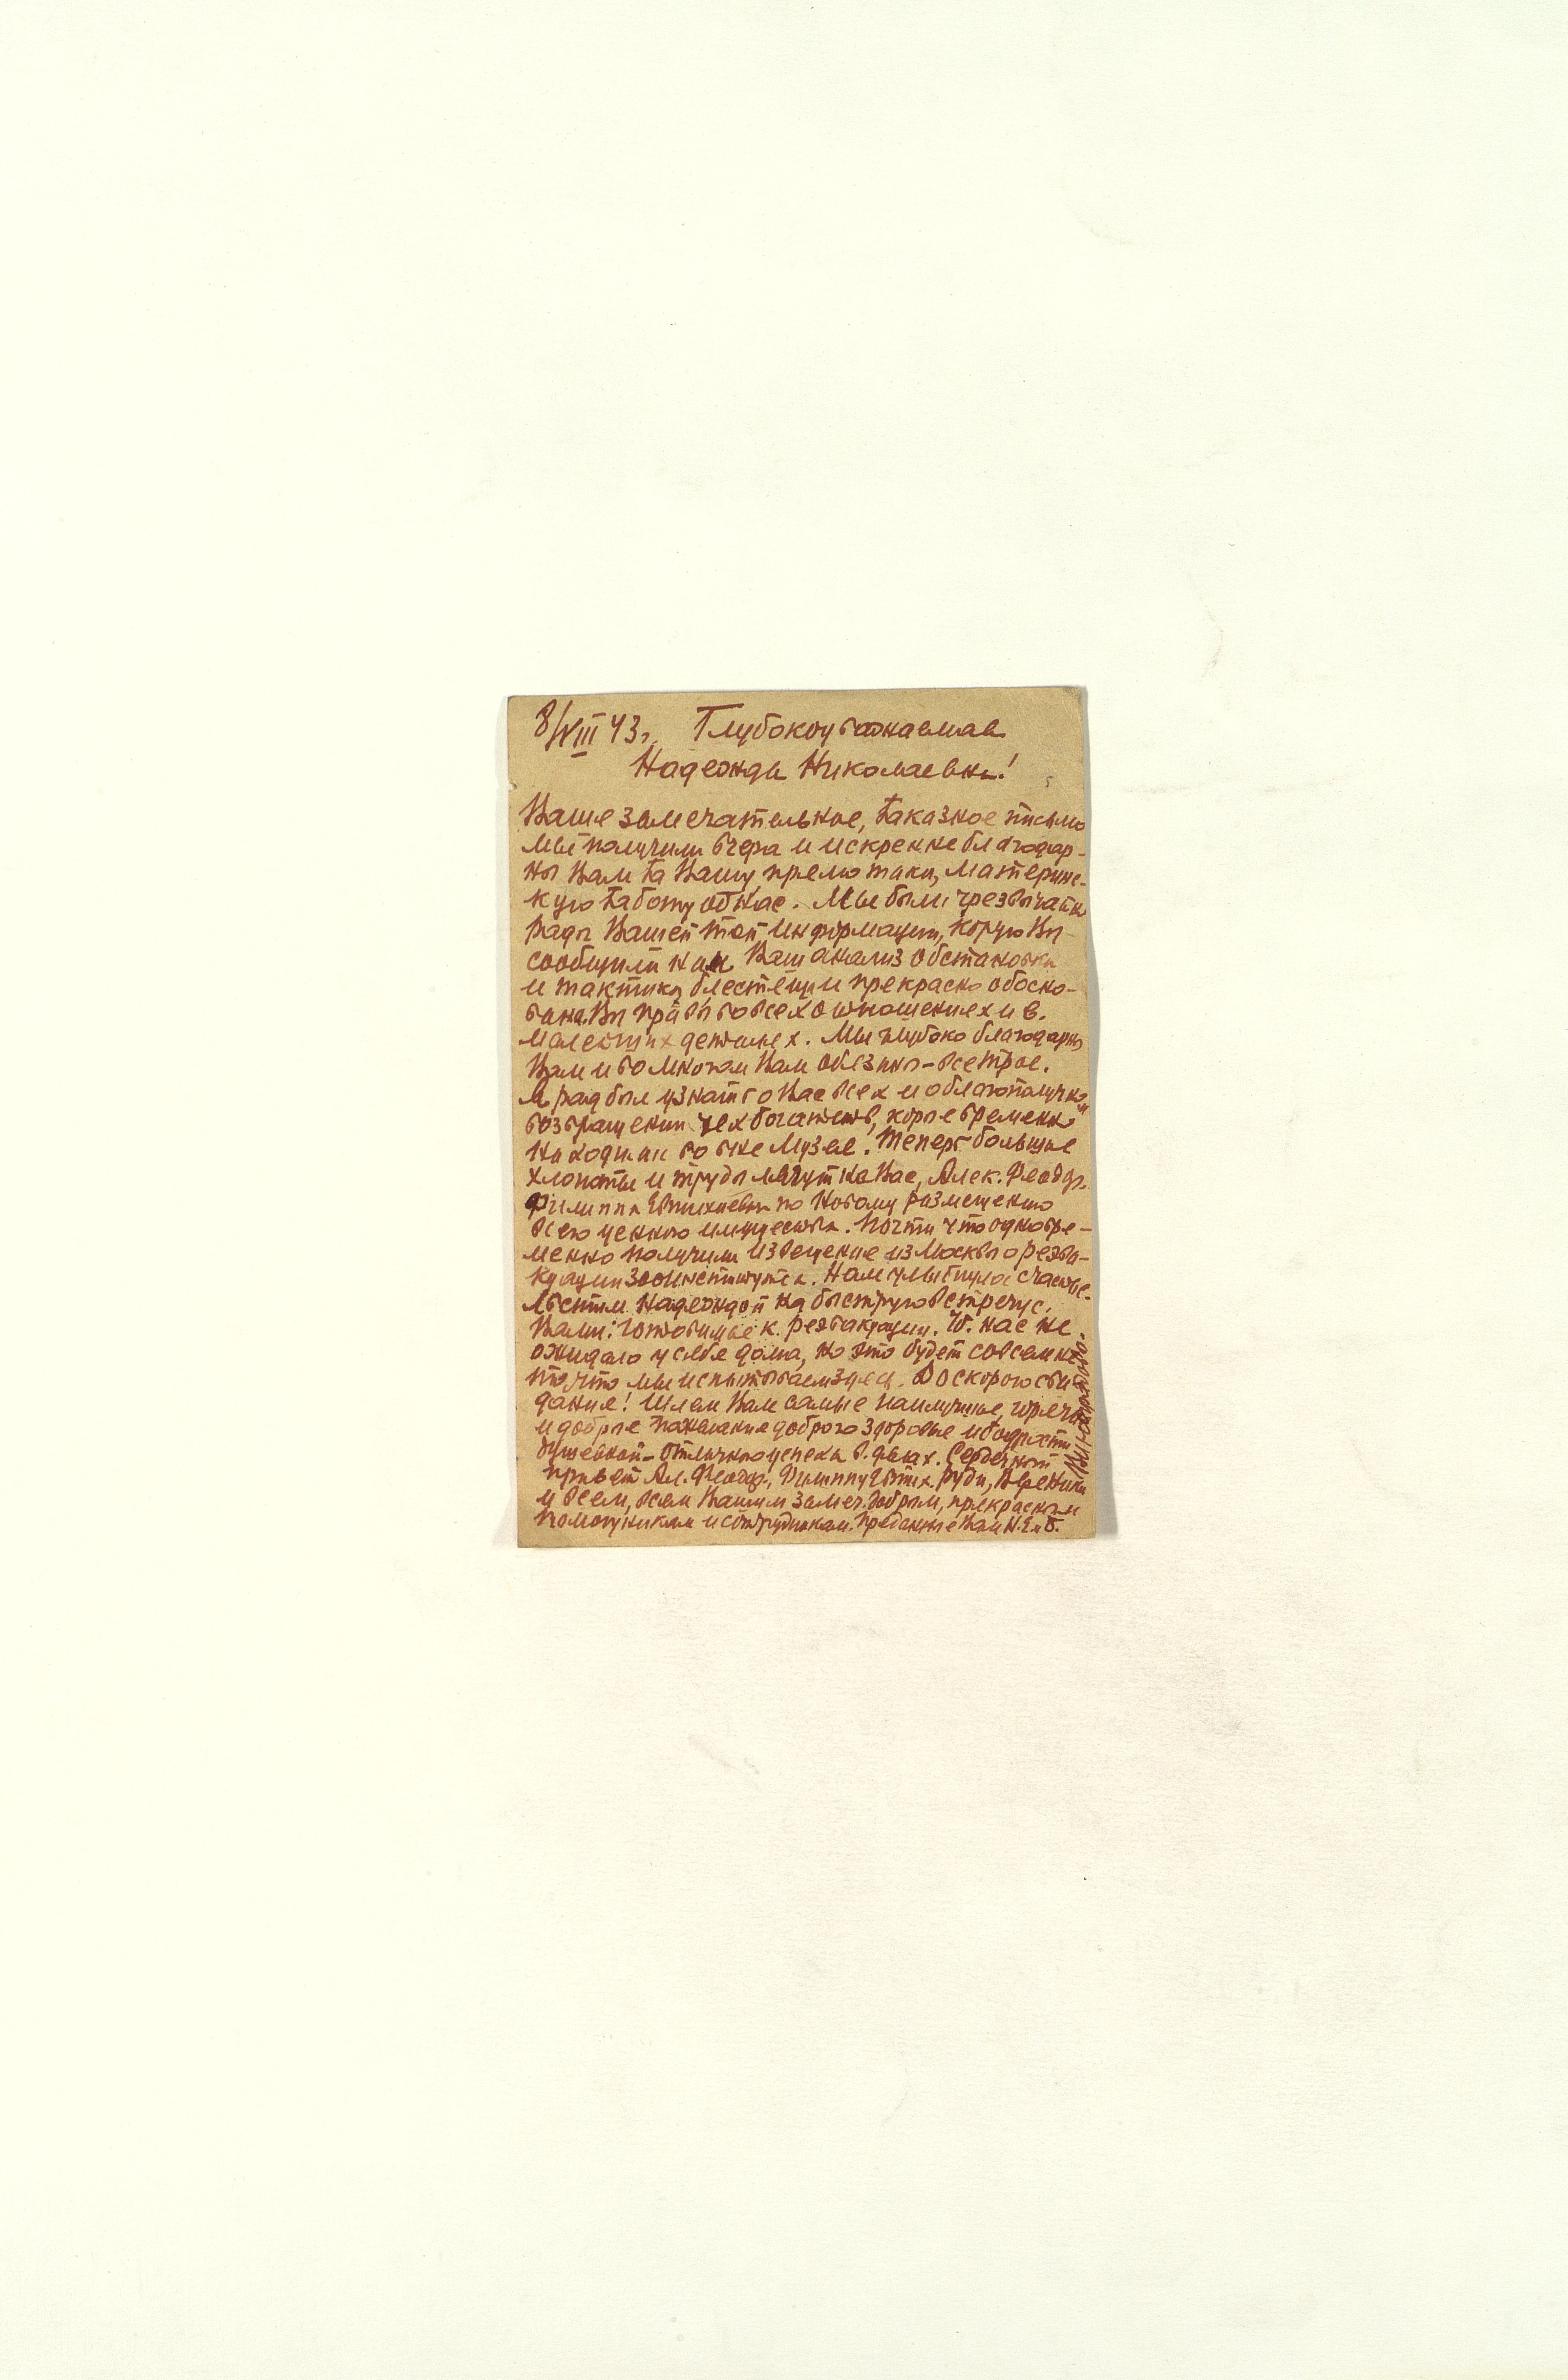 8/VIII 43г. Глубокоуважаемая
Надежда Николаевна!
Ваше замечательное, заказное письмо
мы получили вчера и искренне благодар-
ны Вам за Вашу прямо таки, материнс-
кую заботу об нас. Мы были чрезвычайно
рады Вашей той информации, корую Вы
сообщили нам Ваш анализ обстановки
и тактики блестящи и прекрасно обосно-
вана. Вы правы во всех отношениях и в
малейших деталях. Мы глубоко благодарны
Вам и во многом Вам обязаны - все трое.
Я рад был узнать о Вас всех и о благополучном
возвращении тех богатств, корые временно
находились во вне Музея. Теперь большие
хлопоты и труды лягут на Вас, Алек. Феодор.
Филиппа по новому размещению
всего ценного имущества. Почти что одновре-
менно получили извещение из Москвы о реэва-
куации Зооинститута. Нам улыбнулось счастье.
Льстим надеждой на быструю встречу с
Вами: готовимся к реэвакуации. Ч. нас не
ожидало у себя дома, но это будет совсем не
то, что мы испытываем здесь. До скорого сви-
дания! Шлем Вам самые наилучшие, горячие
и добрые пожелания доброго здоровья и бодрости
душевной - отличного успеха в делах. Сердечный
привет Ал. Феодор., Филиппу Руди,
и всем, всем Вашим замеч. добрым, прекрасным
помощникам и сотрудникам. Преданные Вам Н. Е. и В.